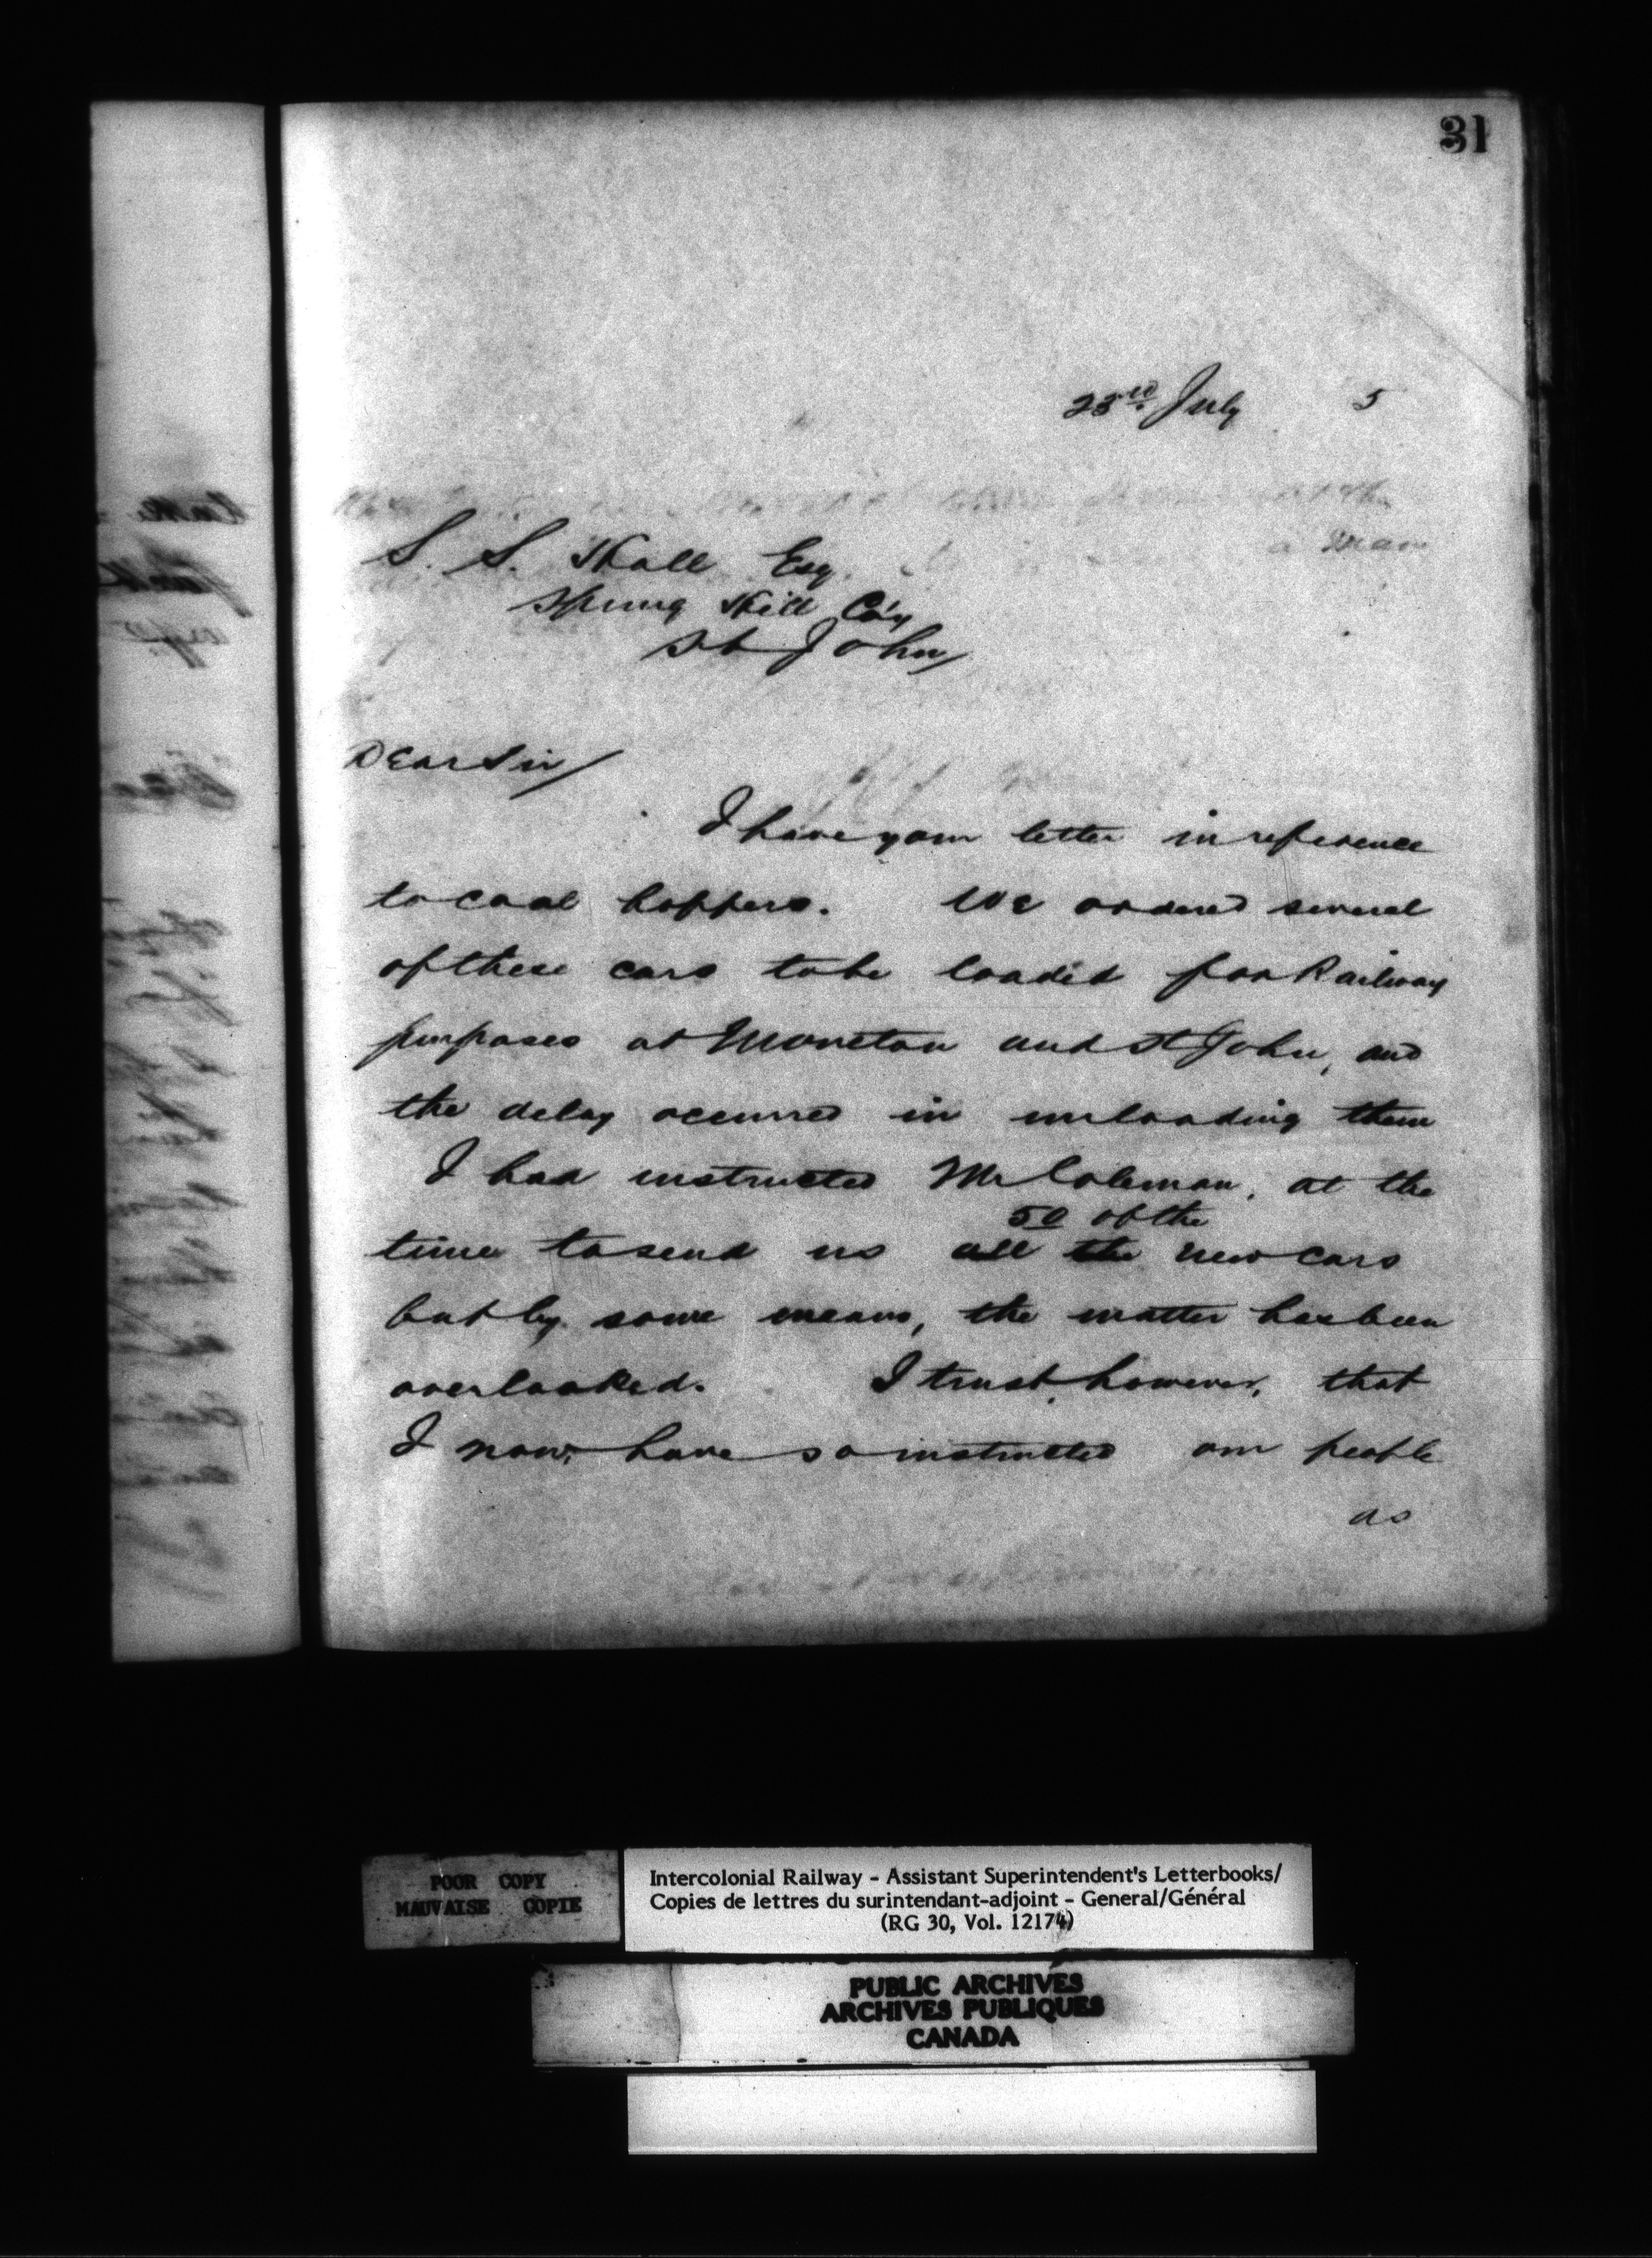 31
23rd July 5
S. S. Hall Esq.
Spring Hill Co'y
St John
Dear Sir/
I have your letter in reference
to coal hoppers. We ordered several
of these cars to be loaded for Railway
purposes at Moncton and St John, and
the delay occurred in unloading them
I had instructed Mr Coleman, at the
50 of the
time to send us all the new cars
but by some means, the matter has been
overlooked. I trust, however, that
I now, have so instructed our people
as
POOR COPY
MAUVAISE COPIE
Intercolonial Railway - Assistant Superintendent's Letterbooks/
Copies de lettres du surintendant-adjoint - General/Général
(RG 30, Vol. 12174)
PUBLIC ARCHIVES
ARCHIVES PUBLIQUES
CANADA